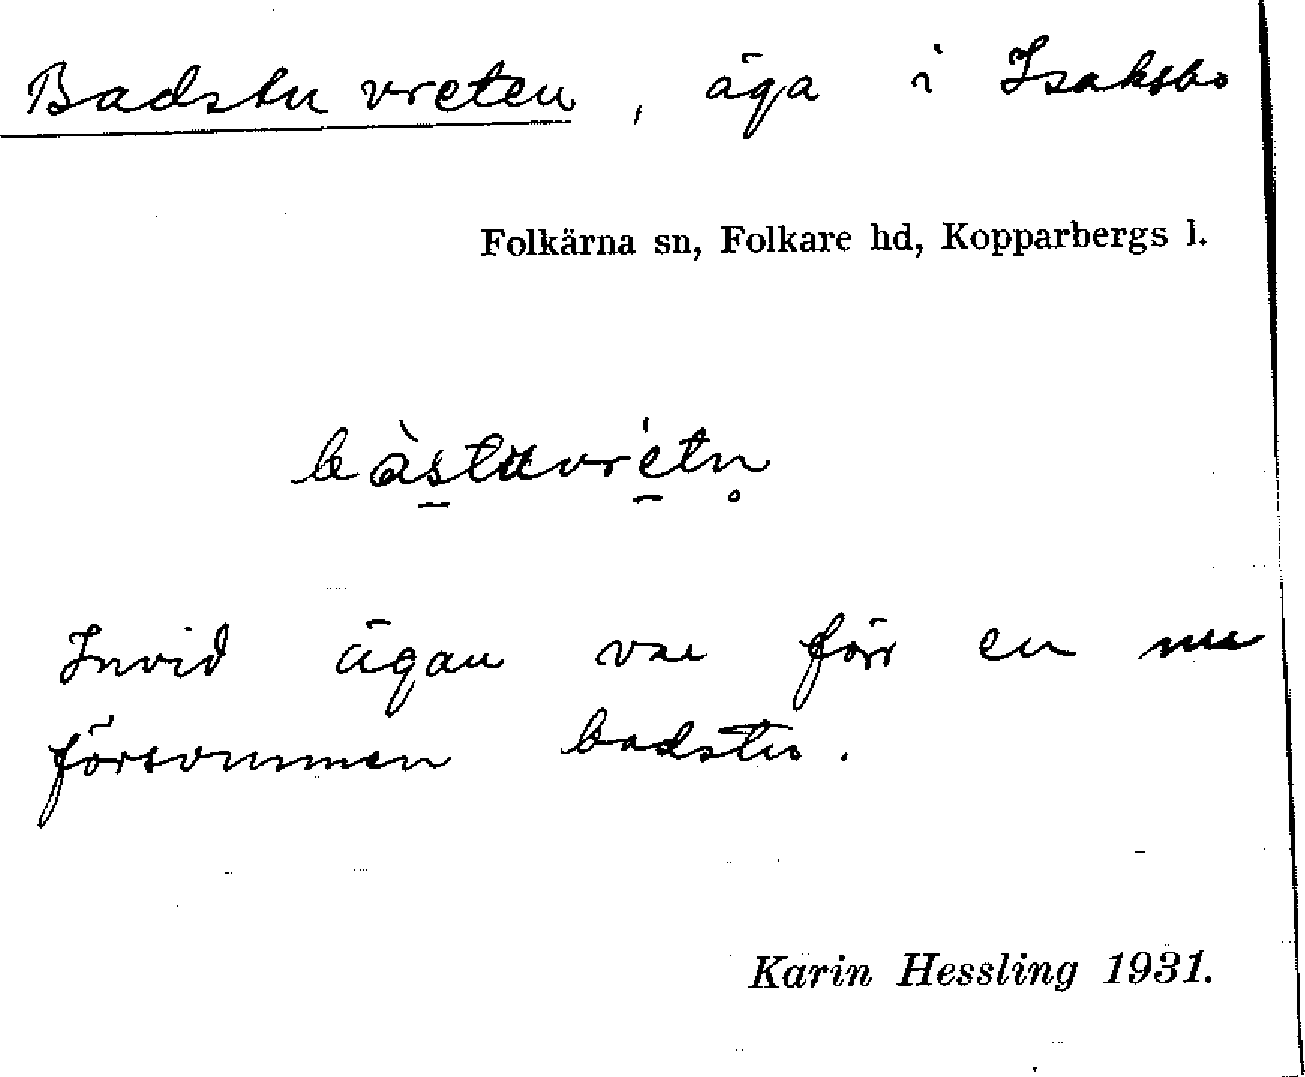 Badstuvreten, äga i Isaksbo
Folkärna sn, Folkare hd, Kopparbergs l.
bàs̠tuvre̠tn̥
Invid ägan var förr en nu
försvunnen badstu.
Karin Hessling 1931.